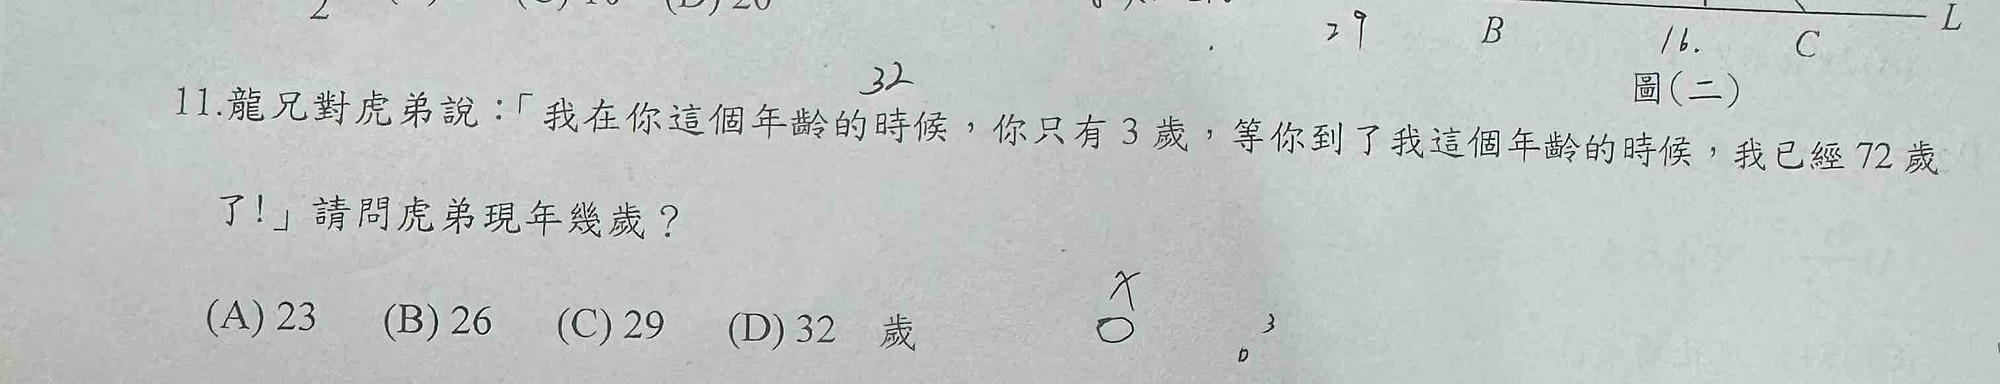 2 (C) 10 (D) 20
29 B 16. C L
圖(二)
32
11.龍兄對虎弟說:「我在你這個年齡的時候,你只有 3 歲,等你到了我這個年齡的時候,我已經 72 歲
了!」請問虎弟現年幾歲?
x
(A) 23 (B) 26 (C) 29 (D) 32 歲
3
0